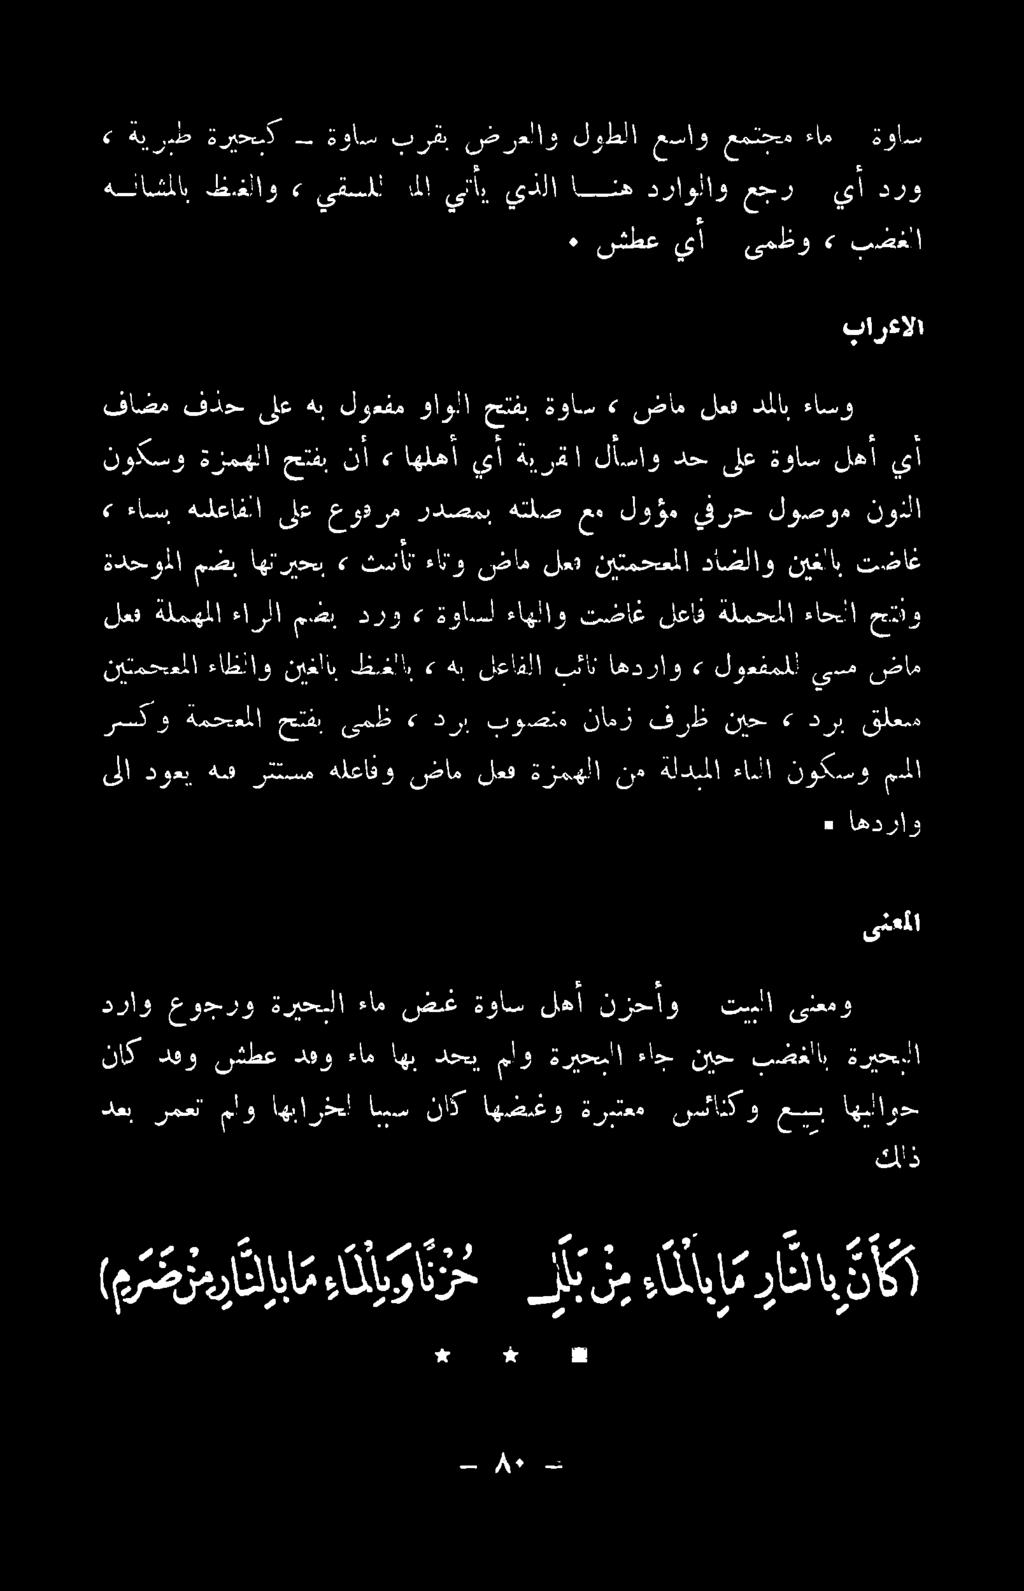 ساوة ماء مجتمع واسع الطول والعرض بقرب ساوة ــ كبحيرة طبرية ،
ورد أي رجع والوارد هنــــا الذي يأتي الماء للسقي ، والغيظ بالمشالـــه
الغضب ، وظمى أي عطش ٠
الاعراب
وساء بالمد فعل ماض ، ساوة بفتح الواو مفعول به على حذف مضاف
أي أهل ساوة على حد واسأل القرية أي أهلها ، أن بفتح الهمزة وسكون
النون موصول حرفي مؤول مع صلته بمصدر مرفوع على الفاعلية بساء ،
غاضت بالغين والضاد المعجمتين فعل ماض وتاء تأنيث ، بحيرتها بضم الموحدة
وفتح الحاء المهملة فاعل غاضت والهاء لساوة ، ورد بضم الراء المهملة فعل
ماض مبني للمفعول ، واردها نائب الفاعل به ، بالغيظ بالغين والظاء المعجمتين
متعلق برد ، حين ظرف زمان منصوب برد ، ظمى بفتح المعجمة وكسر
الميم وسكون الياء المبدلة من الهمزة فعل ماض وفاعله مستتر فيه يعود الى
واردها ٠
المعنى
ومعنى البيت وأحزن أهل ساوة غيض ماء البحيرة ورجوع وارد
البحيرة بالغضب حين جاء البحيرة ولم يجد بها ماء وقد عطش وقد كان
حواليها بِيَع وكنائس معتبرة وغيضها كان سببا لخرابها ولم تعمر بعد
ذلك
(كَأَنَّ بِالنَّارِ مَا بِالْمَاءِ مِنْ بَلَلٍ حُزْنًا وَبِالْمَاءِ مَا بِالنَّارِ مِنْ ضَرَمِ)
— ٨٠ —